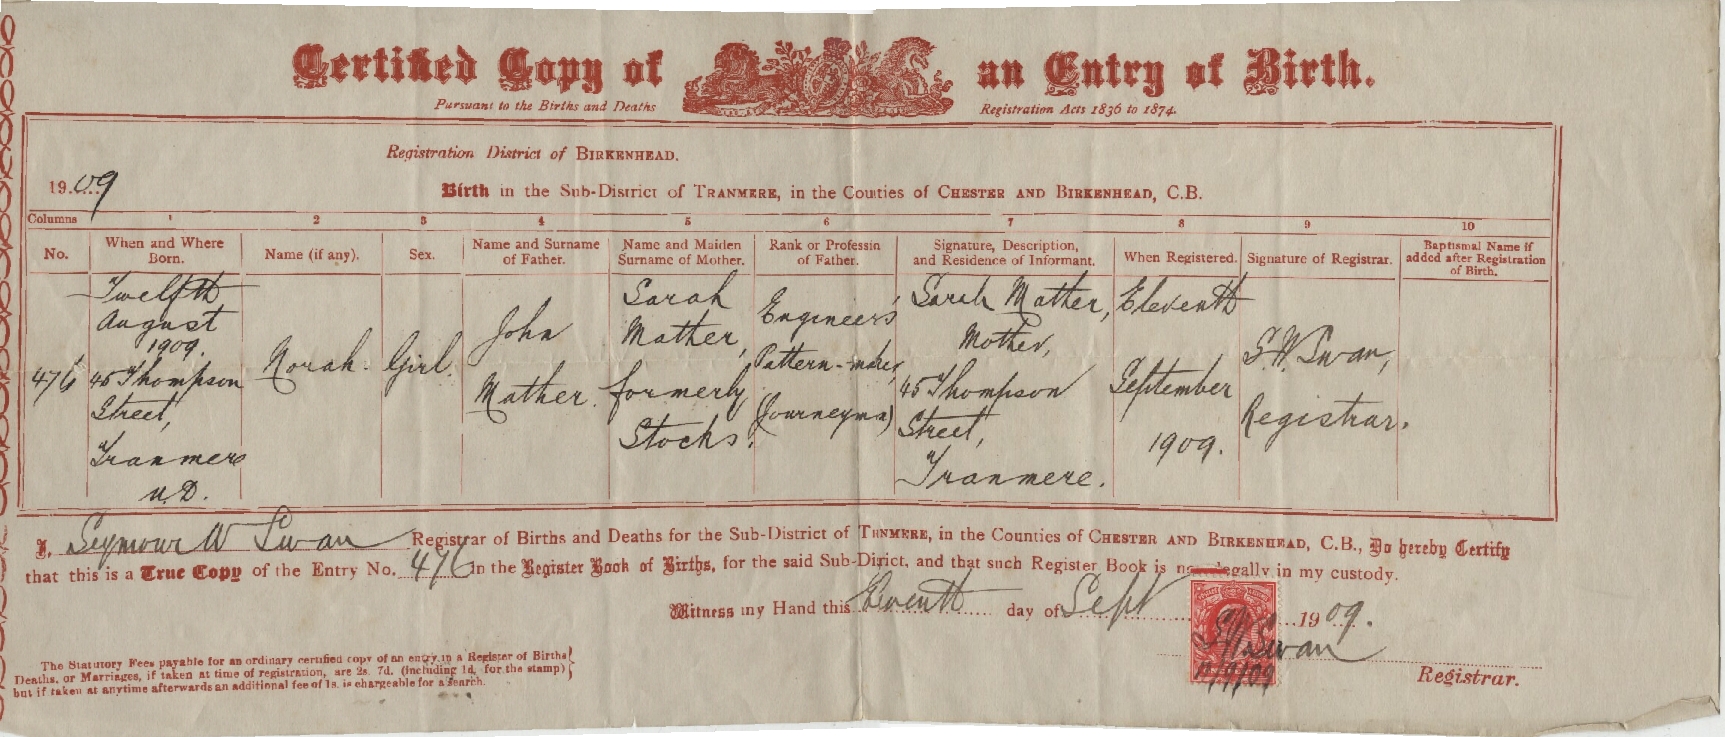 Certified Copy of an Entry of Birth.
Pursuant to the Births and Deaths Registration Acts 1836 to 1874.
Registration District of BIRKENHEAD.
1909
Birth in the Sub-District of TRANMERE, in the Counties of CHESTER AND BIRKENHEAD, C.B.
Columns 1 2 3 4 5 6 7 8 9 10
No.
When and Where
Born.
Name (if any).
Sex.
Name and Surname
of Father.
Name and Maiden
Surname of Mother.
Rank or Professin
of Father.
Signature, Description,
and Residence of Informant.
When Registered.
Signature of Registrar.
Baptismal Name if
added after Registration
of Birth.
476
Twelfth
August
1909.
45 Thompson
Street,
Tranmere
U.D.
Norah.
Girl.
John
Mather.
Sarah
Mather,
formerly
Stocks.
Engineer's
Pattern-maker
(Journeyman)
Sarah Mather,
Mother,
45 Thompson
Street,
Tranmere.
Eleventh
September
1909.
S. W. Swan,
Registrar.
I, Seymour W Swan Registrar of Births and Deaths for the Sub-District of TRNMERE, in the Counties of CHESTER AND BIRKENHEAD, C.B., Do hereby Certify
that this is a True Copy of the Entry No. 476 in the Register Book of Births, for the said Sub-District, and that such Register Book is now legally in my custody.
Witness my Hand this day of Sept 1909.
S W Swan
/9/09
Registrar.
The Statutory Fees payable for an ordinary certified copy of an entry in a Register of Births
Deaths, or Marriages, if taken at time of registration, are 2s. 7d. (including 1d. for the stamp)
but if taken at anytime afterwards an additional fee of 1s. is chargeable for a search.